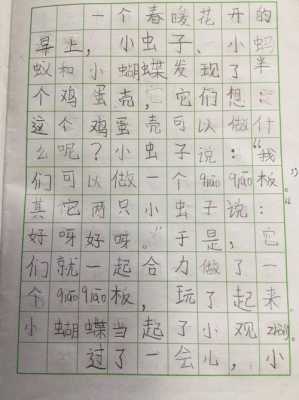 一个春暖花开的
早上，小虫子、小蚂
蚁和小蝴蝶发现了半
个鸡蛋壳，它们想：
这个鸡蛋壳可以做什
么呢？小虫子说：“我
们可以做一个qiāo qiāo板。”
其它两只小虫子说：“
好呀好呀。”于是，它
们就一起合力做了一
个qiāoqiāo板，玩了起来
小蝴蝶当起了小观zhòng。
过了一会儿，小